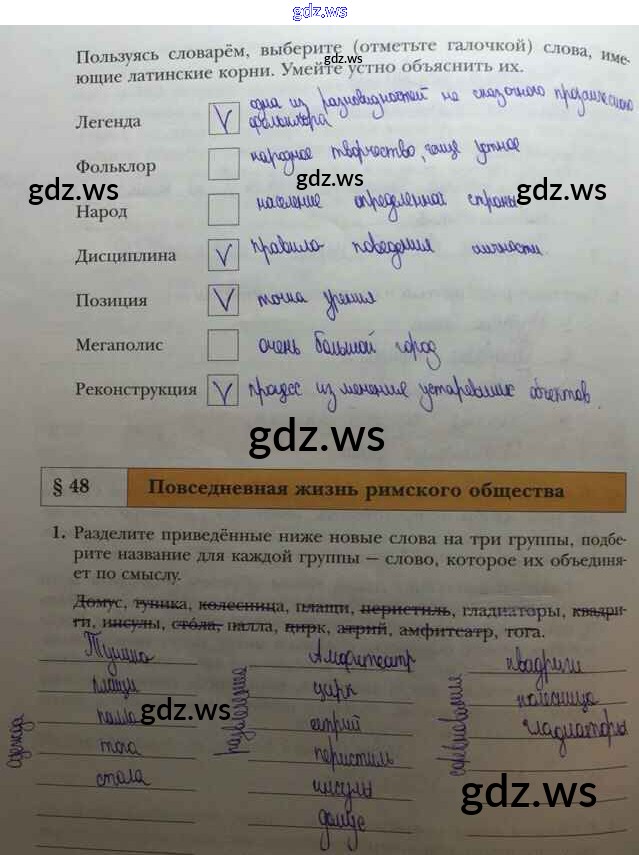 gdz.ws
Пользуясь словарём, выберите (отметьте галочкой) слова, име-
gdz.ws
ющие латинские корни. Умейте устно объяснить их.
одна из разновидностей не сказочного прозаического
Легенда V фольклора
Фольклор народное творчество, чаще устное
gdz.ws
gdz.ws
gdz.ws
Народ население определенной страны
Дисциплина V правила поведения личности.
Позиция V точка зрения
Мегаполис очень большой город
Реконструкция V процесс изменения устаревших объектов.
gdz.ws
§ 48 Повседневная жизнь римского общества
1. Разделите приведённые ниже новые слова на три группы, подбе-
рите название для каждой группы — слово, которое их объединя-
ет по смыслу.
Домус, туника, колесница, плащи, перистиль, гладиаторы, квадри-
ги, инсулы, стола, палла, цирк, атрий, амфитеатр, тога.
одежда
Туника
плащи
палла
тога
стола
развлечение
Амфитеатр
цирк
атрий
перистиль
инсулы
домус
соревнования
квадриги
колесница
гладиаторы
gdz.ws
gdz.ws